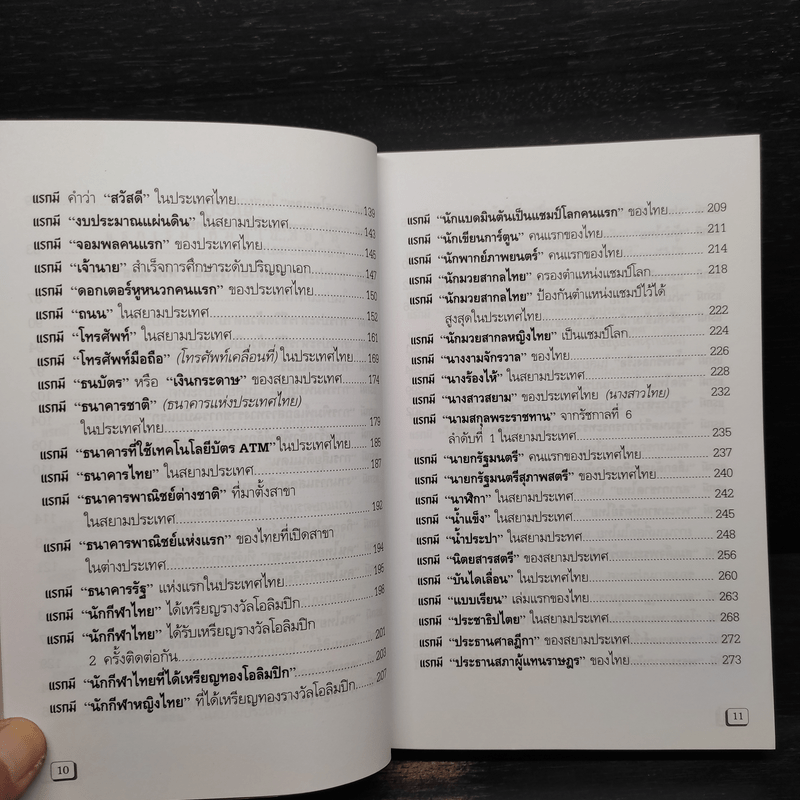 แรกมี คำว่า “สวัสดี” ในประเทศไทย..........139
แรกมี “งบประมาณแผ่นดิน” ในสยามประเทศ..........143
แรกมี “จอมพลคนแรก” ของประเทศไทย..........145
แรกมี “เจ้านาย” สำเร็จการศึกษาระดับปริญญาเอก..........147
แรกมี “ดอกเตอร์หูหนวกคนแรก” ของประเทศไทย..........150
แรกมี “ถนน” ในสยามประเทศ..........152
แรกมี “โทรศัพท์” ในสยามประเทศ..........161
แรกมี “โทรศัพท์มือถือ” (โทรศัพท์เคลื่อนที่) ในประเทศไทย..........169
แรกมี “ธนบัตร” หรือ “เงินกระดาษ” ของสยามประเทศ..........174
แรกมี “ธนาคารชาติ” (ธนาคารแห่งประเทศไทย)
ในประเทศไทย..........179
แรกมี “ธนาคารที่ใช้เทคโนโลยีบัตร ATM” ในประเทศไทย..........185
แรกมี “ธนาคารไทย” ในสยามประเทศ..........187
แรกมี “ธนาคารพาณิชย์ต่างชาติ” ที่มาตั้งสาขา
ในสยามประเทศ..........192
แรกมี “ธนาคารพาณิชย์แห่งแรก” ของไทยที่เปิดสาขา
ในต่างประเทศ..........194
แรกมี “ธนาคารรัฐ” แห่งแรกในประเทศไทย..........195
แรกมี “นักกีฬาไทย” ได้เหรียญรางวัลโอลิมปิก..........198
แรกมี “นักกีฬาไทย” ได้รับเหรียญรางวัลโอลิมปิก
2 ครั้งติดต่อกัน..........201
แรกมี “นักกีฬาไทยที่ได้เหรียญทองโอลิมปิก”..........203
แรกมี “นักกีฬาหญิงไทย” ที่ได้เหรียญทองรางวัลโอลิมปิก..........207
10
แรกมี “นักแบดมินตันเป็นแชมป์โลกคนแรก” ของไทย..........209
แรกมี “นักเขียนการ์ตูน” คนแรกของไทย..........211
แรกมี “นักพากย์ภาพยนตร์” คนแรกของไทย..........214
แรกมี “นักมวยสากลไทย” ครองตำแหน่งแชมป์โลก..........218
แรกมี “นักมวยสากลไทย” ป้องกันตำแหน่งแชมป์ไว้ได้
สูงสุดในประเทศไทย..........222
แรกมี “นักมวยสากลหญิงไทย” เป็นแชมป์โลก..........224
แรกมี “นางงามจักรวาล” ของไทย..........226
แรกมี “นางร้องไห้” ในสยามประเทศ..........228
แรกมี “นางสาวสยาม” ของประเทศไทย (นางสาวไทย) 232
แรกมี “นามสกุลพระราชทาน” จากรัชกาลที่ 6
ลำดับที่ 1 ในสยามประเทศ..........235
แรกมี “นายกรัฐมนตรี” คนแรกของประเทศไทย..........237
แรกมี “นายกรัฐมนตรีสุภาพสตรี” ของประเทศไทย..........240
แรกมี “นาฬิกา” ในสยามประเทศ..........242
แรกมี “น้ำแข็ง” ในสยามประเทศ..........245
แรกมี “น้ำประปา” ในสยามประเทศ..........248
แรกมี “นิตยสารสตรี” ของสยามประเทศ..........256
แรกมี “บันไดเลื่อน” ในประเทศไทย..........260
แรกมี “แบบเรียน” เล่มแรกของไทย..........263
แรกมี “ประชาธิปไตย” ในสยามประเทศ..........268
แรกมี “ประธานศาลฎีกา” ของสยามประเทศ..........272
แรกมี “ประธานสภาผู้แทนราษฎร” ของไทย..........273
11